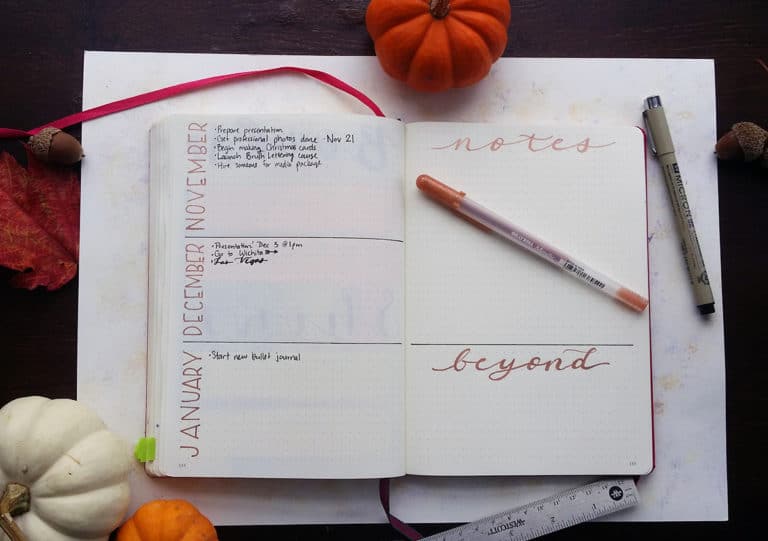 NOVEMBER
• Prepare presentation
• Get professional photos done - Nov 21
• Begin making Christmas cards
• Launch Brush Lettering course
• Hire someone for media package
DECEMBER
• Presentation! Dec 3 @ 1pm
• Go to Wichita
• Las Vegas
JANUARY
• Start new bullet journal
notes
beyond
MICRON
WESTCOTT